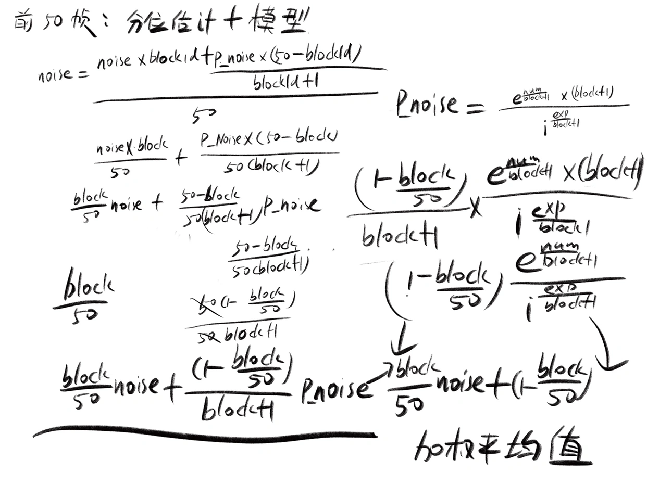 前50帧：分位估计+模型
noise = (noise×blockid+P_noise×(50-blockId)/(blockId+1))/50
Pnoise = (e^(num/(block+1))×(block+1))/(i^(exp/(block+1)))
(noise×block)/50 + (P_Noise×(50-block))/(50(block+1))
block/50 noise + (50-block)/(50(block+1)) P_noise
((1-block/50))/(block+1) × (e^(num/(block+1))×(block+1))/(i^(exp/(block+1)))
(50-block)/(50(block+1))
block/50
(50(1-block/50))/(50 block+1)
(1-block/50) (e^(num/(block+1)))/(i^(exp/(block+1)))
block/50 noise + ((1-block/50))/(block+1) P_noise
block/50 noise+(1-block/50)
加权平均值